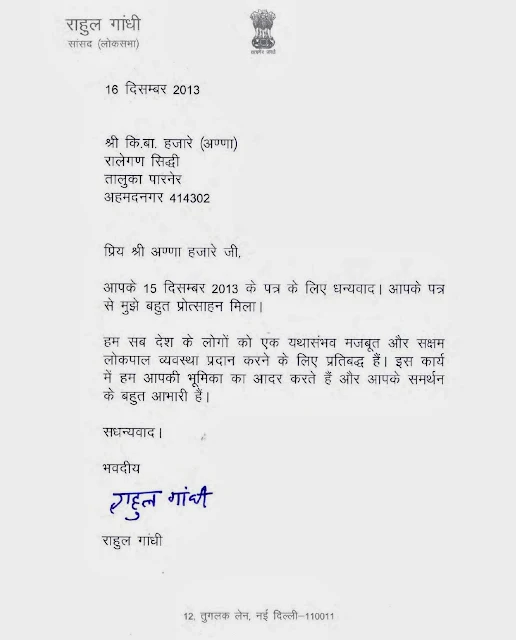 राहुल गांधी
सांसद (लोकसभा)
16 दिसम्बर 2013
श्री कि.बा. हजारे (अण्णा)
रालेगण सिद्धी
तालुका पारनेर
अहमदनगर 414302
प्रिय श्री अण्णा हजारे जी,
आपके 15 दिसम्बर 2013 के पत्र के लिए धन्यवाद। आपके पत्र
से मुझे बहुत प्रोत्साहन मिला।
हम सब देश के लोगों को एक यथासंभव मजबूत और सक्षम
लोकपाल व्यवस्था प्रदान करने के लिए प्रतिबद्ध हैं। इस कार्य
में हम आपकी भूमिका का आदर करते हैं और आपके समर्थन
के बहुत आभारी हैं।
सधन्यवाद।
भवदीय
राहुल गांधी
राहुल गांधी
12, तुगलक लेन, नई दिल्ली–110011